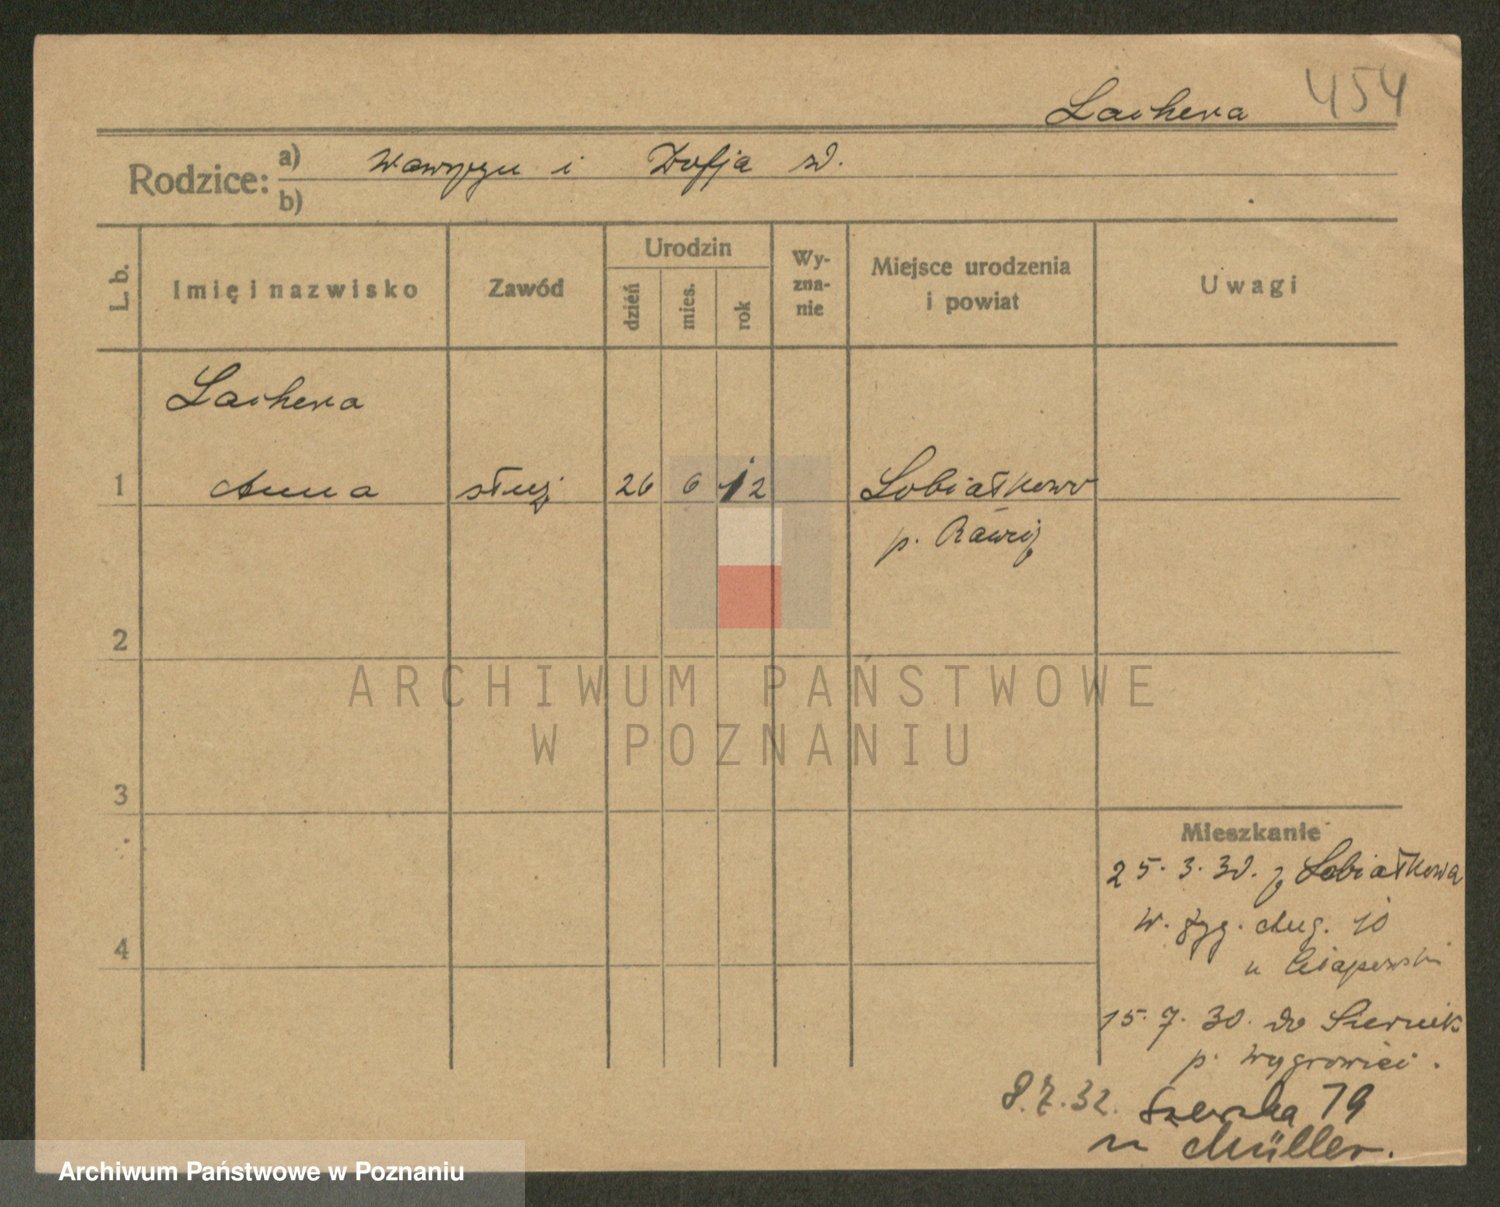 454
Lachera
Rodzice: a) Wawrzyn i Zofja
b)
L. b.
Imię i nazwisko
Zawód
Urodzin
dzień
mies.
rok
Wy-
zna-
nie
Miejsce urodzenia
i powiat
Uwagi
Lachera
1 Anna służ 26 6 12 Łobiałkowo
p. Rawicz
2
3
4
Mieszkanie
25. 3. 30. z Łobiałkowa
W. Zyg. Aug. 10
u
15. 7. 30. do Siernik
p. Wągrowiec.
8.7.32. Szewska 19
u Müller.
ARCHIWUM PAŃSTWOWE
W POZNANIU
Archiwum Państwowe w Poznaniu